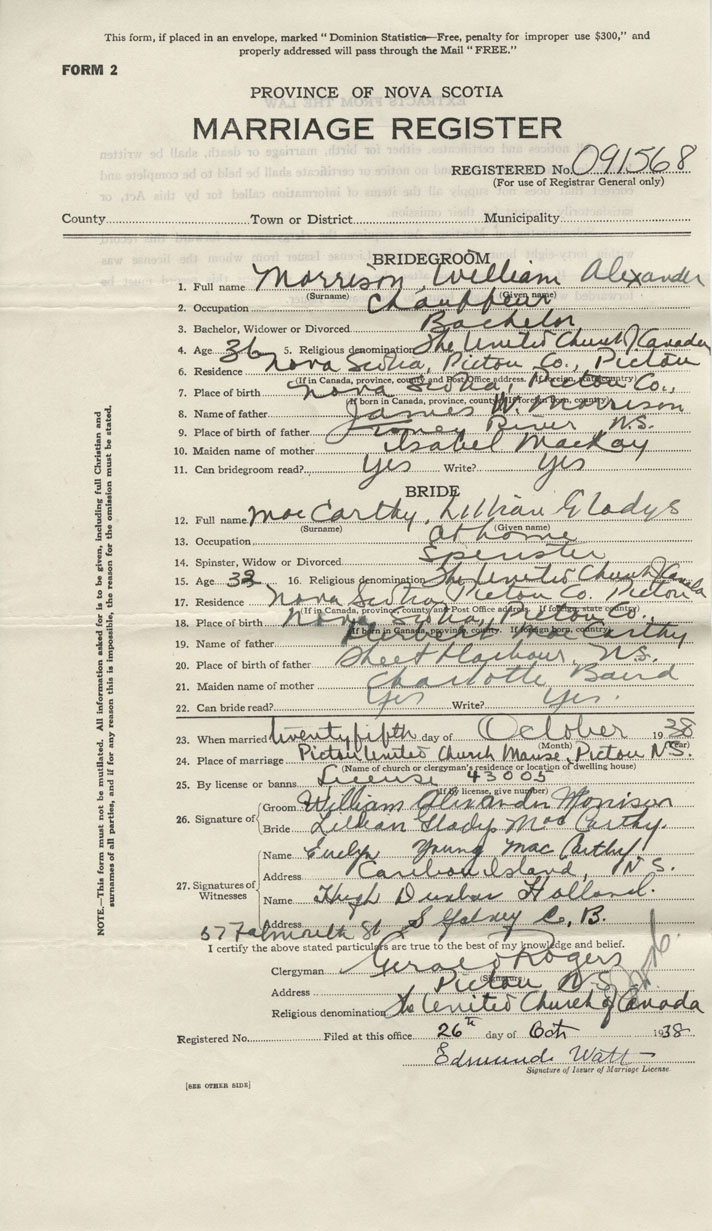 This form, if placed in an envelope, marked "Dominion Statistics—Free, penalty for improper use $300," and
properly addressed will pass through the Mail "FREE."
FORM 2
PROVINCE OF NOVA SCOTIA
MARRIAGE REGISTER
REGISTERED No. 091568
(For use of Registrar General only)
County Town or District Municipality
BRIDEGROOM
1. Full name Morrison, William Alexander
(Surname) (Given name)
2. Occupation Chauffeur
3. Bachelor, Widower or Divorced Bachelor
4. Age 36 5. Religious denomination The United Church of Canada
6. Residence Nova Scotia, Pictou Co., Pictou
(If in Canada, province, county and Post Office address. If foreign, state country)
7. Place of birth Nova Scotia, Pictou Co.,
(If born in Canada, province, county. If foreign born, country)
8. Name of father James W. Morrison
9. Place of birth of father Toney River N.S.
10. Maiden name of mother Isabel MacKay
11. Can bridegroom read? Yes Write? Yes
BRIDE
12. Full name MacCarthy, Lillian Gladys
(Surname) (Given name)
13. Occupation at home
14. Spinster, Widow or Divorced Spinster
15. Age 33 16. Religious denomination The United Church of Canada
17. Residence Nova Scotia, Pictou Co. Pictou
(If in Canada, province, county and Post Office address. If foreign state country)
18. Place of birth Nova Scotia, Pictou Co.
(If born in Canada, province, county. If foreign born, country)
19. Name of father MacCarthy
20. Place of birth of father Sheet Harbour, N.S.
21. Maiden name of mother Charlotte Baird
22. Can bride read? Yes Write? Yes.
23. When married twenty fifth day of October 1938
(Month) (Year)
24. Place of marriage Pictou United Church Manse, Pictou N.S.
(Name of church or clergyman's residence or location of dwelling house)
25. By license or banns License 43005
(If by license, give number)
26. Signature of Groom William Alexander Morrison
Bride Lillian Gladys MacCarthy.
27. Signatures of Witnesses Name Evelyn Young MacCarthy
Address Caribou Island, N.S.
Name Hugh Dunbar Holland.
Address 57 Falmouth St S Sydney C.B.
I certify the above stated particulars are true to the best of my knowledge and belief.
Clergyman Gerald Rogers
(Signature)
Address Pictou N.S.
Religious denomination The United Church of Canada
Registered No. Filed at this office 26th day of Oct 1938
Edmund Watt
Signature of Issuer of Marriage License
[SEE OTHER SIDE]
NOTE.—This form must not be mutilated. All information asked for is to be given, including full Christian and
surnames of all parties, and if for any reason this is impossible, the reason for the omission must be stated.